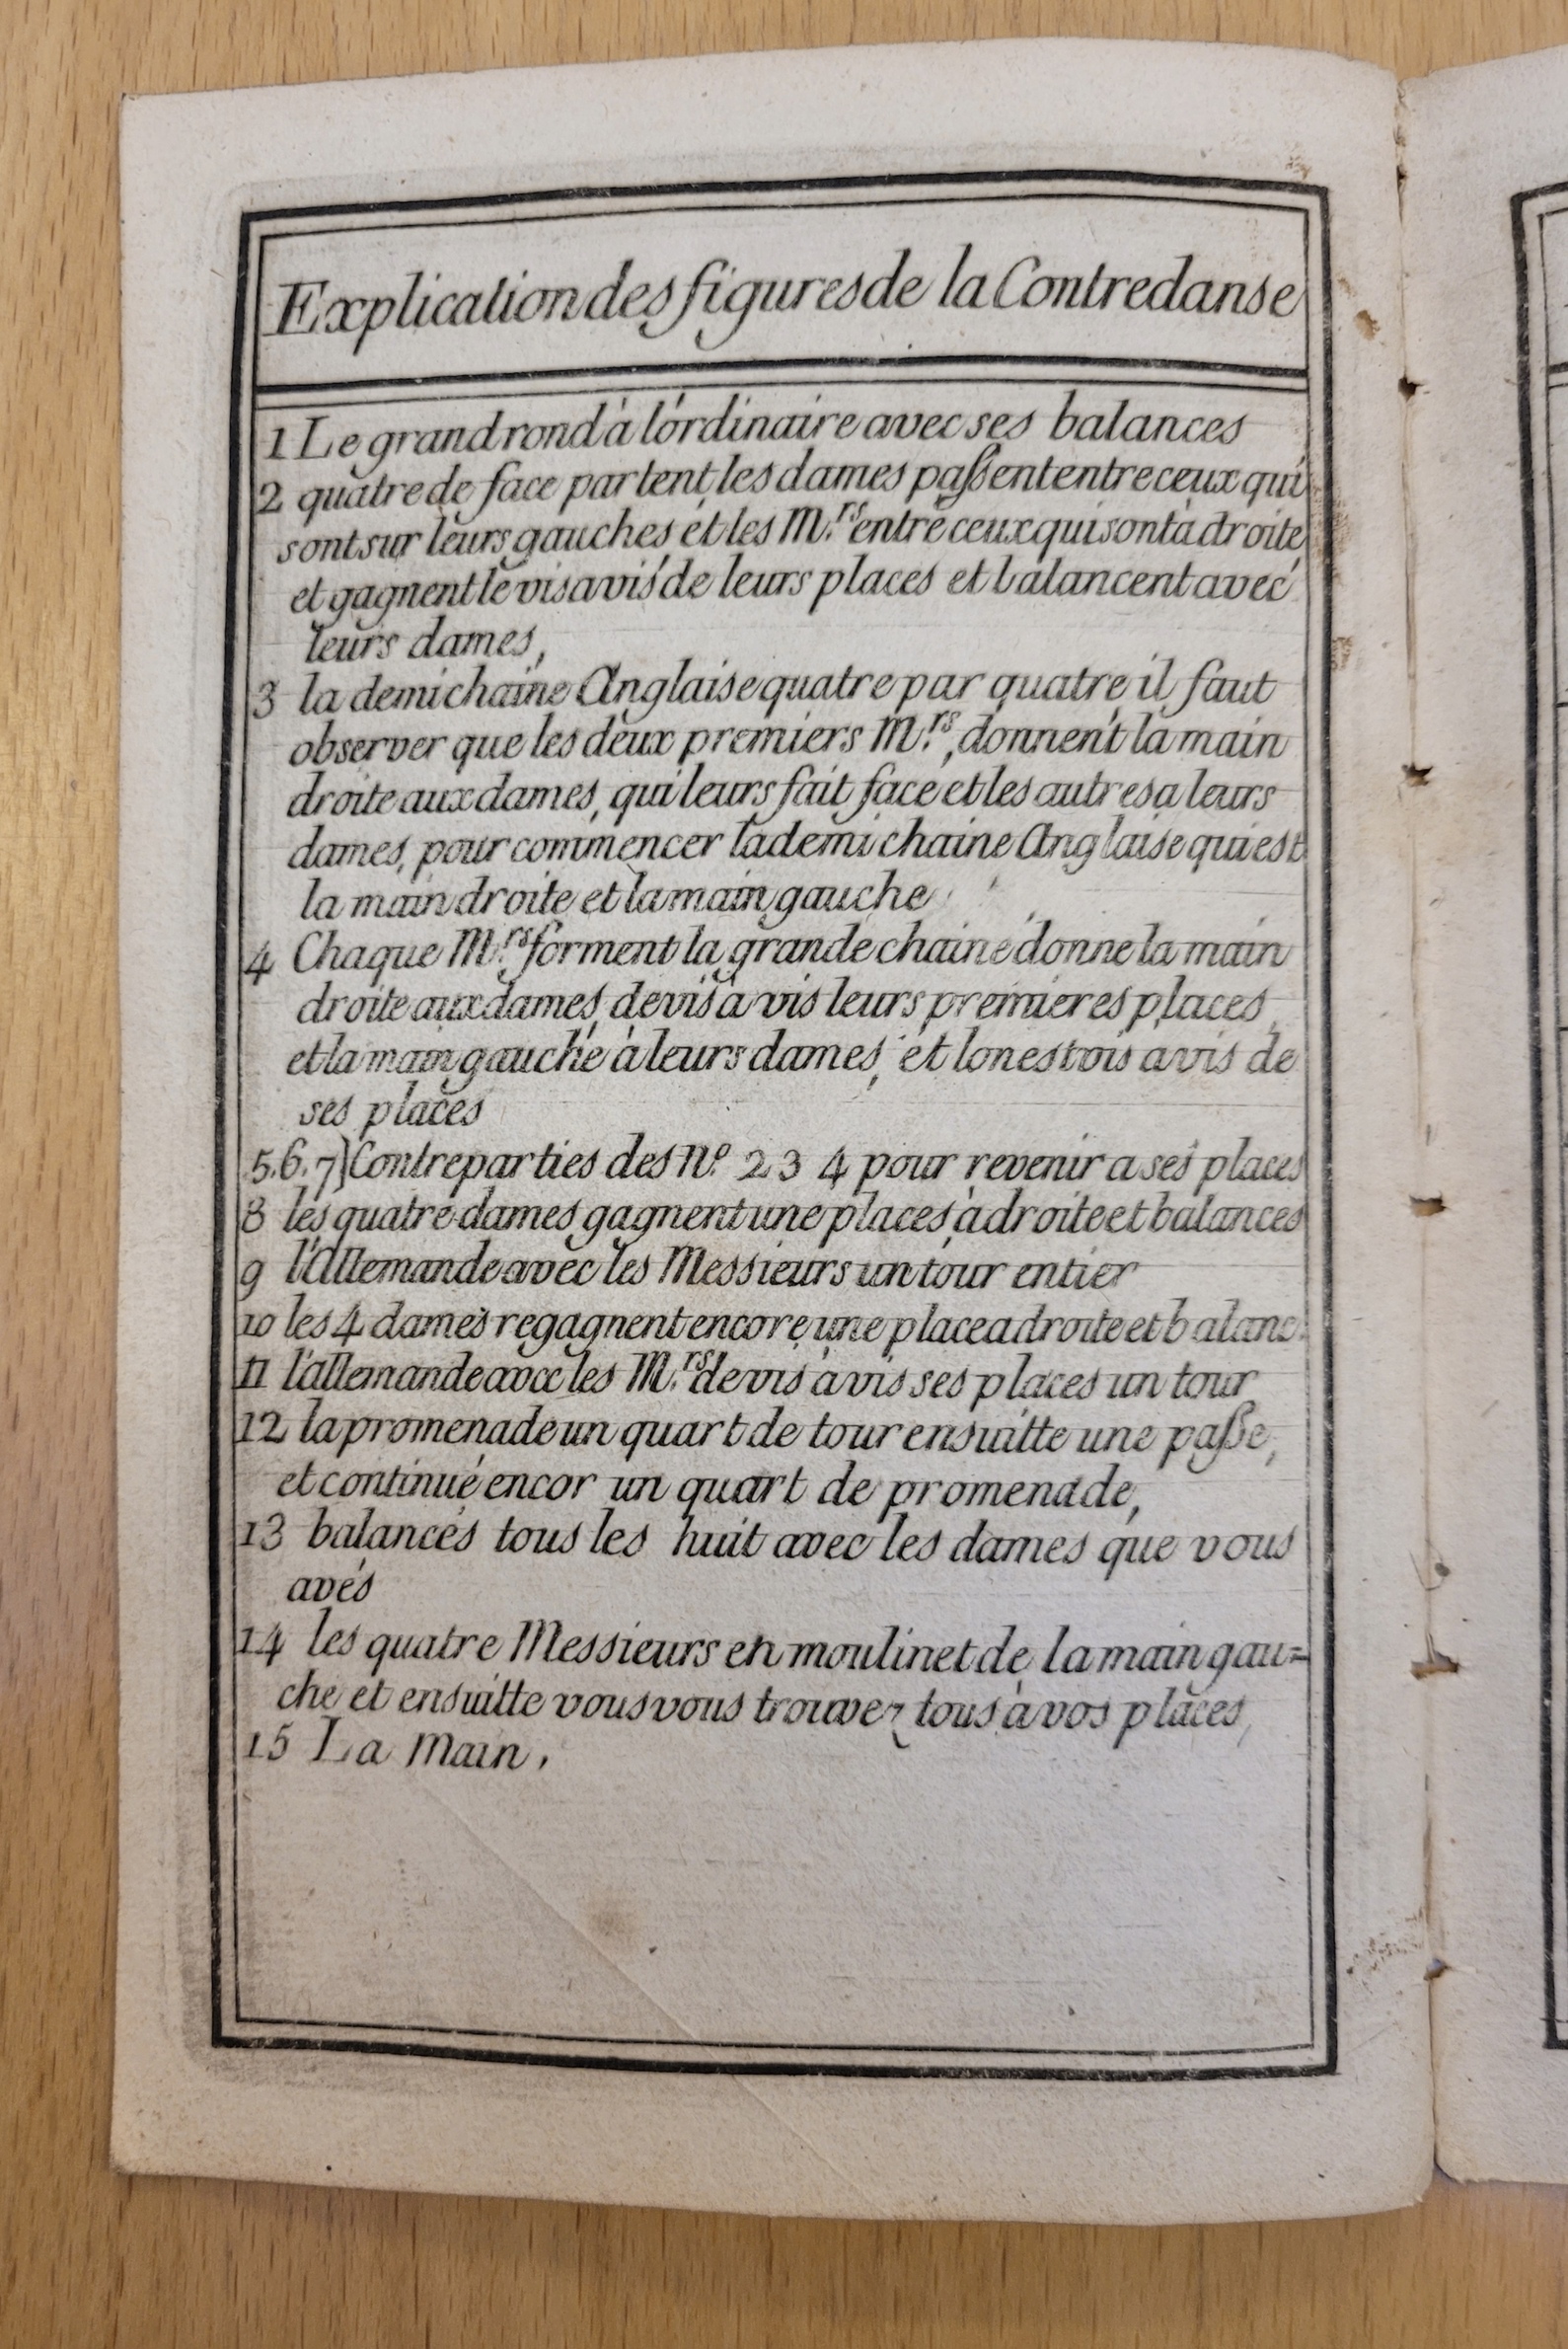 Explication des figures de la Contredanse
1 Le grand rond à l'ordinaire avec ses balances
2 quatre de face partent, les dames paßent entre ceux qui
sont sur leurs gauches et les M.rs entre ceux qui sont à droite,
et gagnent le vis a vis de leurs places et balancent avec
leurs dames,
3 la demi chaine Anglaise quatre par quatre, il faut
observer que les deux premiers M.rs, donnent la main
droite aux dames, qui leurs fait face et les autres a leurs
dames, pour commencer la demi chaine Anglaise qui est
la main droite et la main gauche
4 Chaque M.rs forment la grande chaine donne la main
droite aux dames, de vis a vis leurs premieres places,
et la main gauche à leurs dames, et lon est vis a vis de
ses places
5.6.7] Contreparties des N.o 2 3 4 pour revenir a ses places
8 les quatre dames gagnent une places, à droite et balances
9 l'Allemande avec les Messieurs un tour entier
10 les 4 dames regagnent encore une place a droite et balanc.
11 l'allemande avec les M.rs de vis à vis ses places un tour
12 la promenade un quart de tour ensuitte une paße,
et continué encor un quart de promenade,
13 balancés tous les huit avec les dames que vous
avés
14 les quatre Messieurs en moulinet de la main gau=
che et ensuitte vous vous trouvez tous à vos places,
15 La Main.